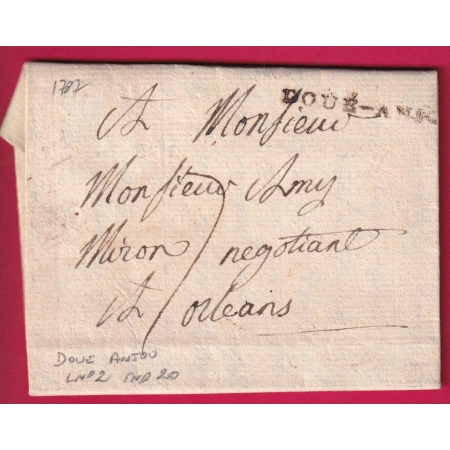 1787
DOUÉ-ANJ
A Monsieur
Monsieur Amy
Miron negotiant
A orleans
7
DOUE ANJOU
LN°2 IND 20